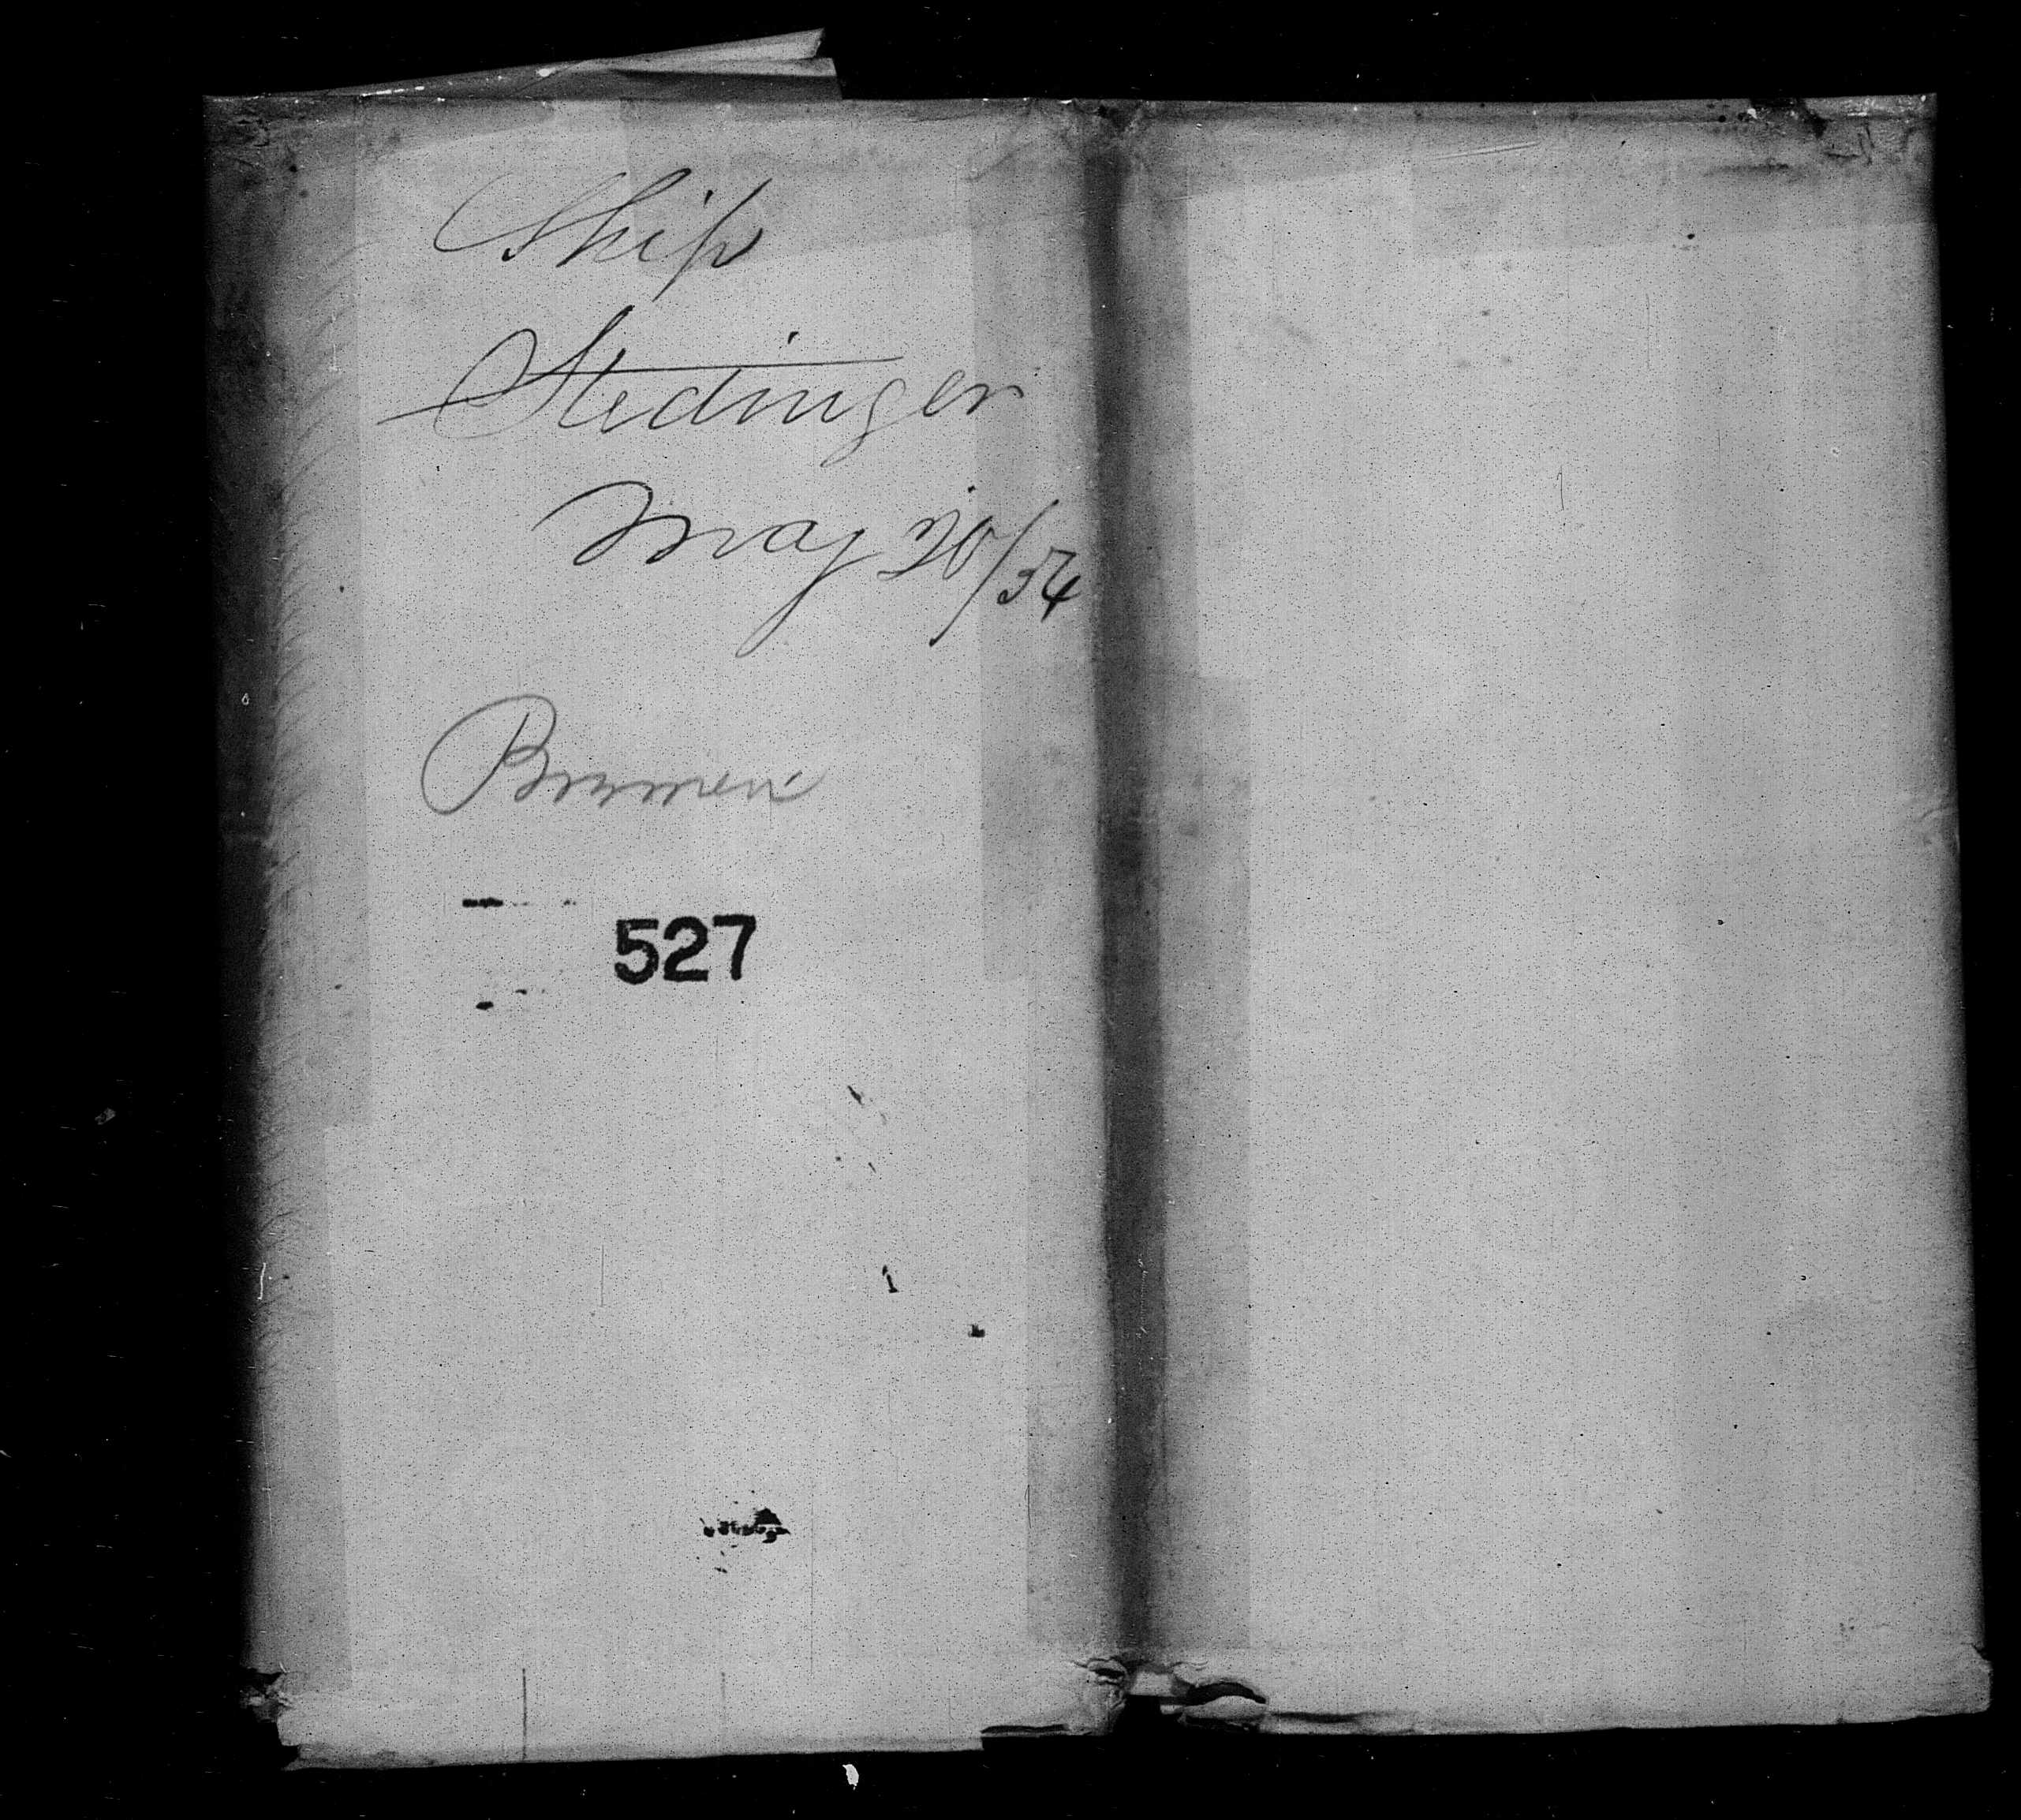 Ship
Stedinger
May 20/54
Bremen
527